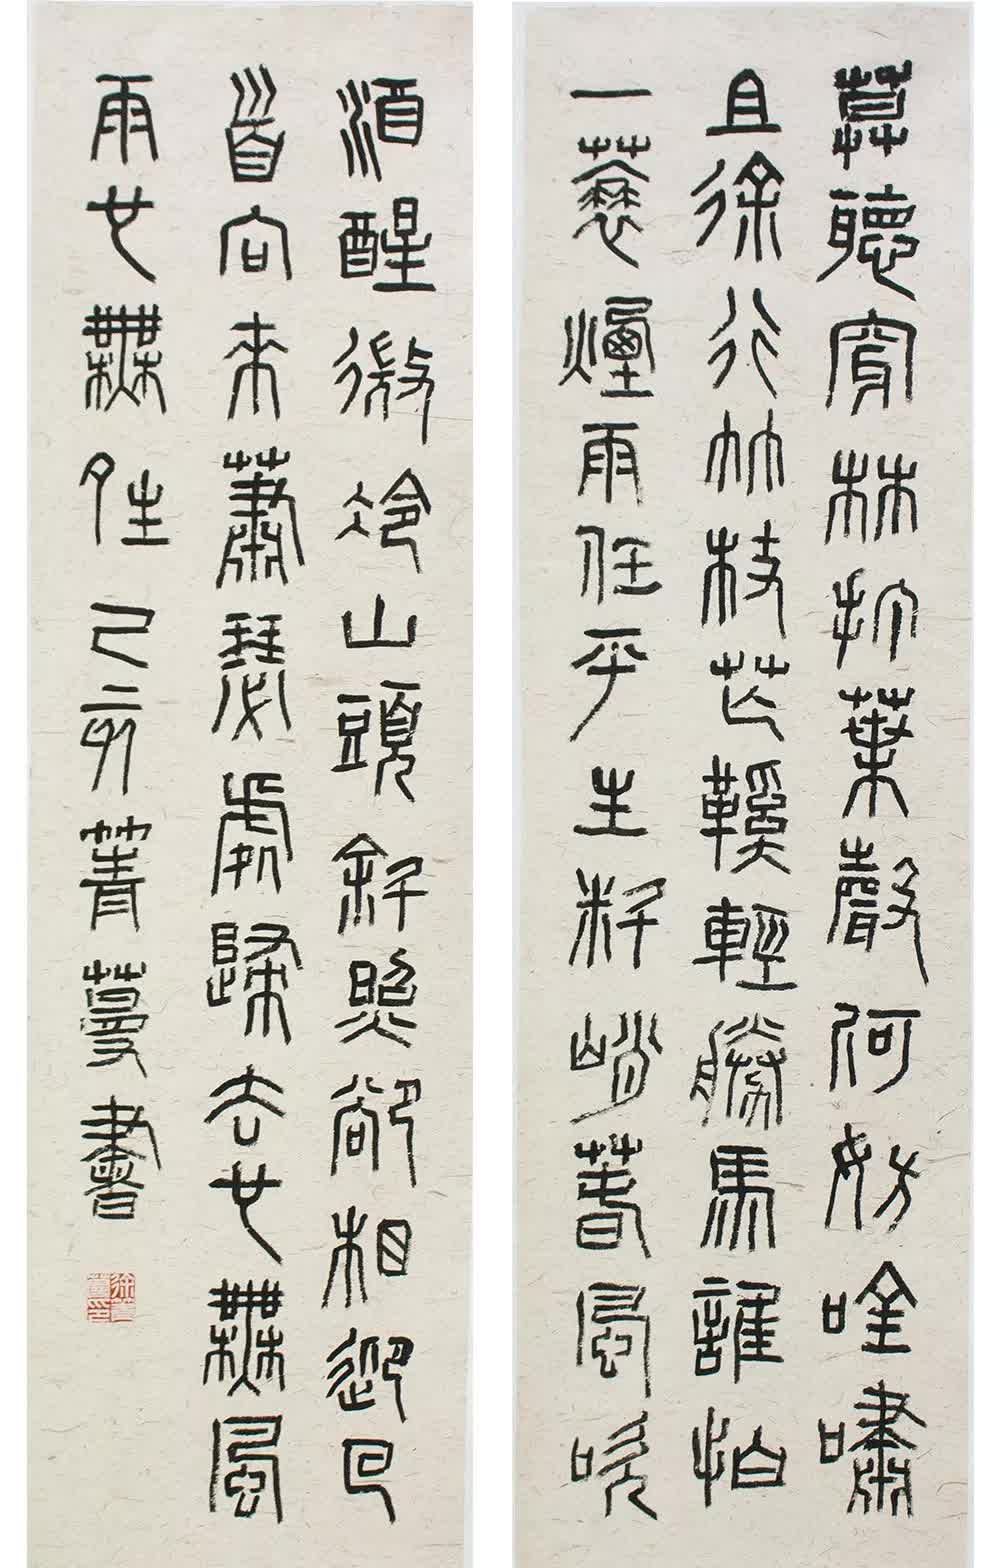 莫聽穿林打葉聲何妨唫嘯
且徐行竹杖芒鞵輕勝馬誰怕
一蓑煙雨任平生料峭萅風吹
酒醒微冷山頭斜照卻相迎回
首向來蕭瑟處歸去也無風
雨也無夝己亥菁蔓書